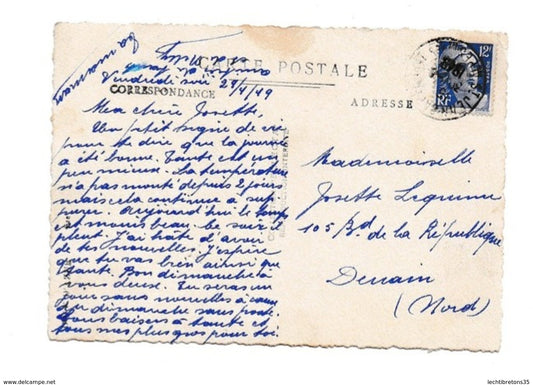 ta maman
CARTE POSTALE
Vendredi soir 29/4/49
CORRESPONDANCE
ADRESSE
12F
RF
Ma chère Josette,
Un petit signe de vie
pour te dire que la journée
a été bonne. Tante est un
peu mieux. La température
n'a pas monté depuis 2 jours
mais cela continue à sup
purer. Aujourd'hui le temps
est moins beau. Ce soir il
pleut. J'ai hâte d'avoir
de tes nouvelles. J'espère
que tu vas bien ainsi que
tante. Bon dimanche à
vous deux. Tu seras un
jour sans nouvelles à cause
du dimanche sans poste.
Bons baisers à tante et
tous mes plus gros pour toi.
Mademoiselle
Josette Lequime
105 Bd de la République
Denain
(Nord)
www.delcampe.net
lechtibretons35